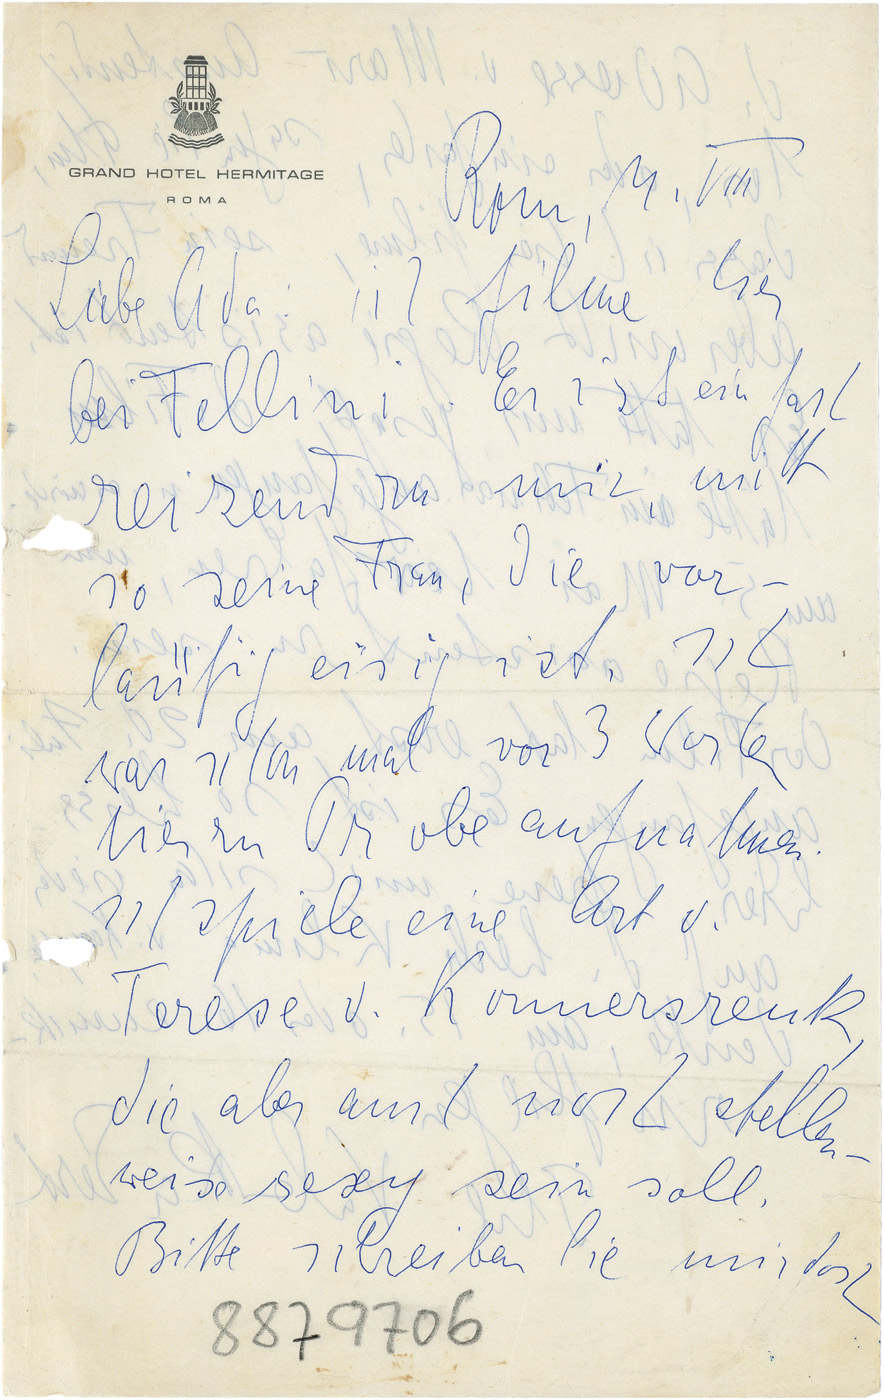 GRAND HOTEL HERMITAGE
ROMA
Rom, 4. VIII
Liebe Ada: ich filme hier
bei Fellini. Er ist einfach
reizend zu mir, nicht
so seine Frau, die vor-
läufig eisig ist. Ich
war schon mal vor 3 Wochen
hier zu Probeaufnahmen.
Ich spiele eine Art v.
Terese v. Konnersreuth,
die aber auch noch stellen-
weise sexy sein soll.
Bitte schreiben Sie mir doch
8879706